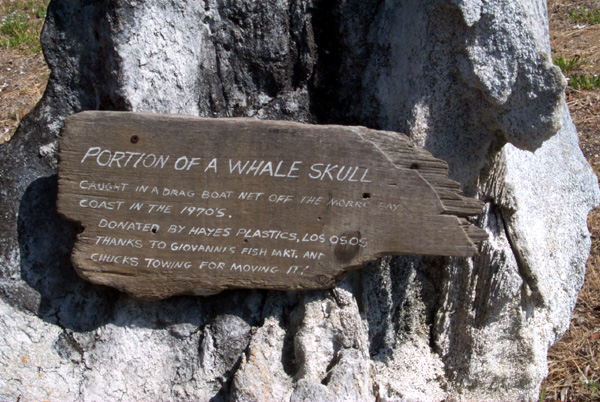 PORTION OF A WHALE SKULL
CAUGHT IN A DRAG BOAT NET OFF THE MORRO BAY
COAST IN THE 1970'S.
DONATED BY HAYES PLASTICS, LOS OSOS
THANKS TO GIOVANNI'S FISH MKT. AND
CHUCKS TOWING FOR MOVING IT!